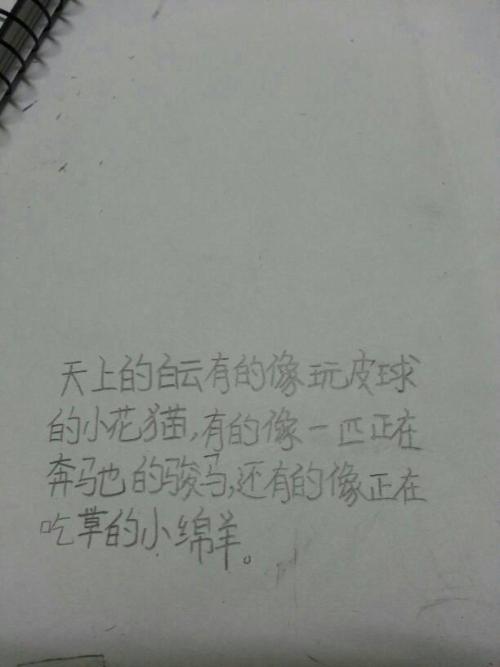 天上的白云有的像玩皮球
的小花猫,有的像一匹正在
奔驰的骏马,还有的像正在
吃草的小绵羊。